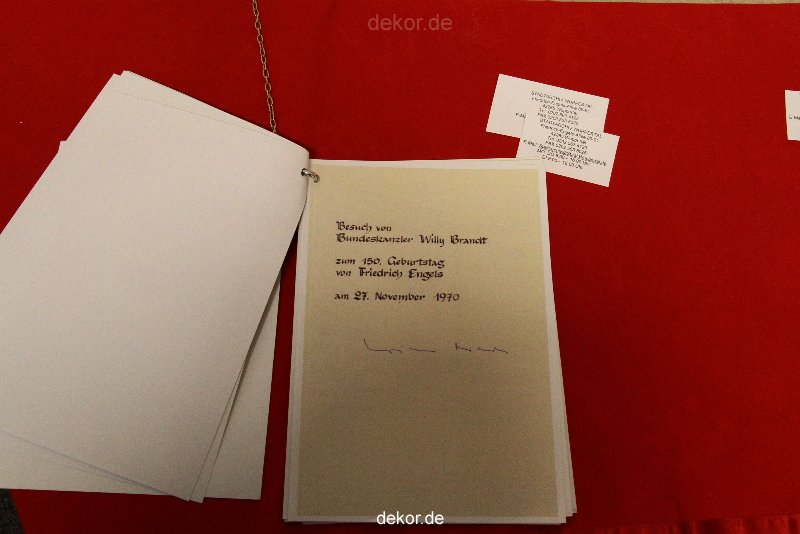 dekor.de
STADTARCHIV WUPPERTAL
STADTARCHIV WUPPERTAL
Besuch von
Bundeskanzler Willy Brandt
zum 150. Geburtstag
von Friedrich Engels
am 27. November 1970
dekor.de